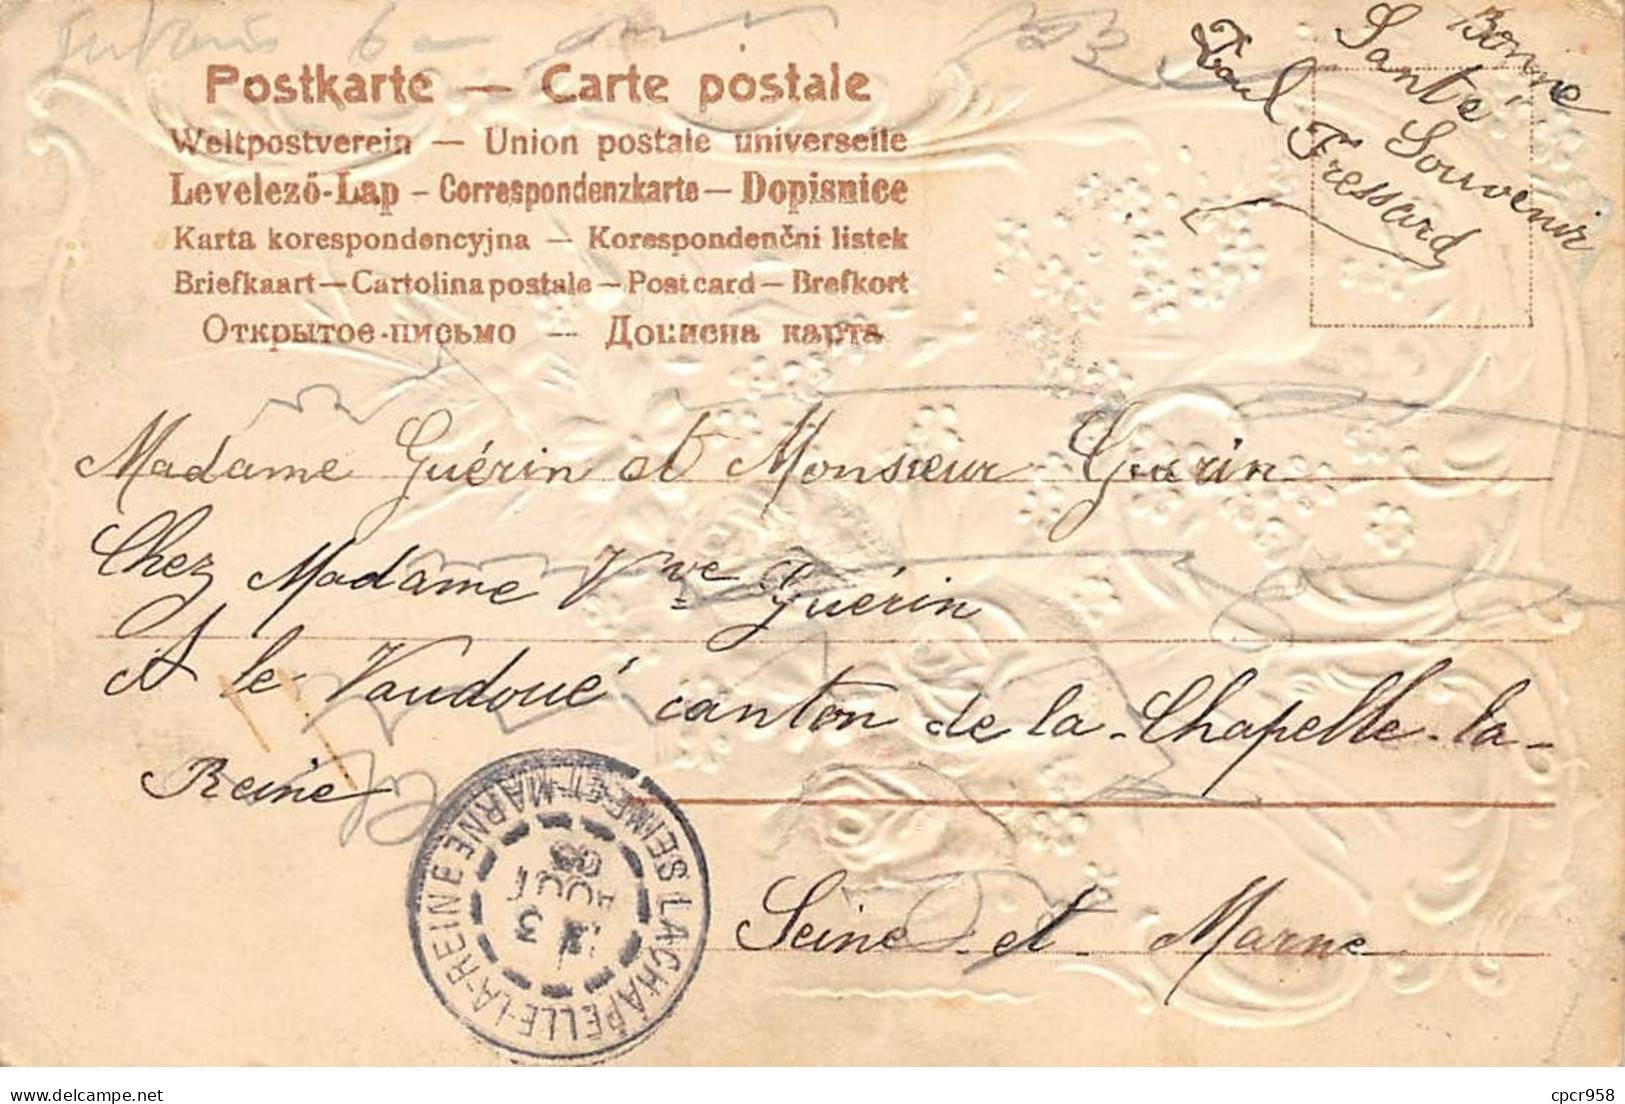 Postkarte — Carte postale
Weltpostverein — Union postale universelle
Levelező-Lap – Correspondenzkarte – Dopisnice
Karta korespondencyjna — Korespondenční listek
Briefkaart — Cartolina postale — Post card — Brefkort
Открытое-письмо — Дописна карта
Bonne
Santé
Souvenir
Paul Fressard
Madame Guérin et Monsieur Guérin
Chez Madame Vve Guérin
A le Vaudoué canton de la-Chapelle-la-
Reine
Seine-et Marne
LA-CHAPELLE-LA-REINE SEINE-ET-MARNE
3
AOUT
delcampe.net
cpcr958